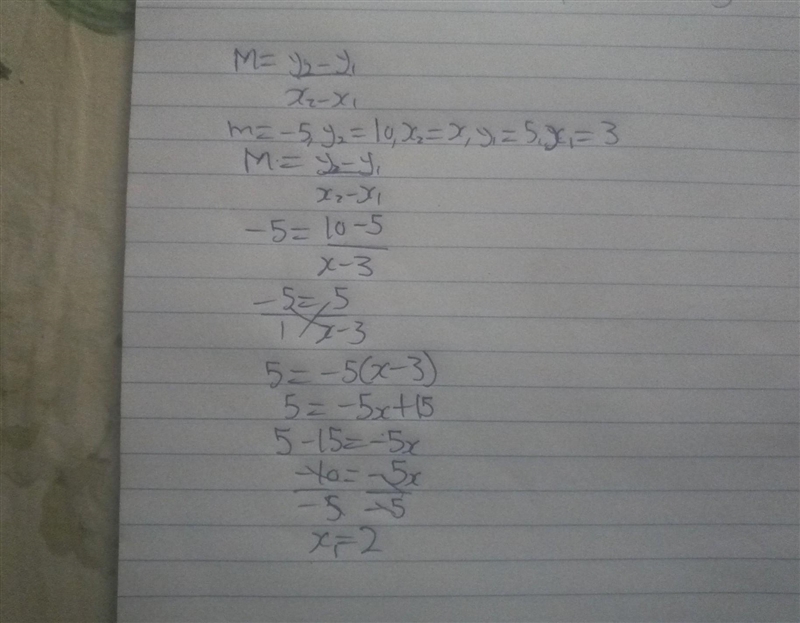 M = y₂ - y₁
x₂ - x₁
m = -5, y₂ = 10, x₂ = x, y₁ = 5, x₁ = 3
M = y₂ - y₁
x₂ - x₁
-5 = 10 - 5
x - 3
-5 = 5
1 x - 3
5 = -5(x - 3)
5 = -5x + 15
5 - 15 = -5x
-10 = -5x
-5 -5
x = 2